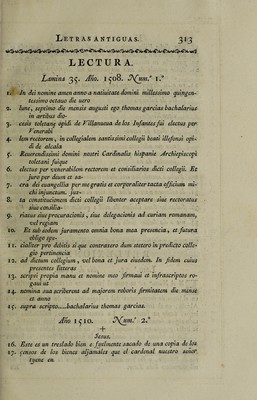 LETRAS ANTIGUAS. 313
LECTURA.
Lamina 35. Año. 1508. Num.º 1.º
1. In dei nomine amen anno a natiuitate domini millesimo quingen-
tessimo octauo die uero
2. lune, septimo die mensis augusti ego thomas garcias bachalarius
in artibus dio-
3. cesis toletanę opidi de Villanueua de los Infantes fui electus per
Venerabi
4. lem rectorem, in collegialem santissimi collegii beati illefonsi opi-
di de alcala
5. Reuerendissimi domini nostri Cardinalis hispanie Archiepiscopi
toletani fuique
6. electus per venerabilem rectorem et consiliarios dicti collegii. Et
juro per deum et sa-
7. cra dei euangellia per me gratis et corporaliter tacta officium mi-
chi injunctum. jux-
8. ta constitucionem dicti collegii libenter aceptare siue rectoratus
siue consilia-
9. riatus siue procuracionis, siue delegacionis ad curiam romanam,
vel regiam
10. Et sub eodem juramento omnia bona mea presencia, et futura
obligo spe-
11. cialiter pro debitis si que contraxero dum stetero in predicto colle-
gio pertinencia
12. ad dictum collegium, vel bona et jura eiusdem. In fidem cuius
presentes litteras
13. scripsi propia manu et nomine meo firmaui et infrascriptos ro-
gaui ut
14. nomina sua scriberent ad majorem roboris firmitatem die mense
et anno
15. supra scripto....bachalarius thomas garcias.
Año 1510. Num.º 2.º
+
Jesus.
16. Este es un treslado bien e fyelmente sacado de una copia de los
17. censos de los bienes aljamales que el cardenal nuestro señor
tyene en